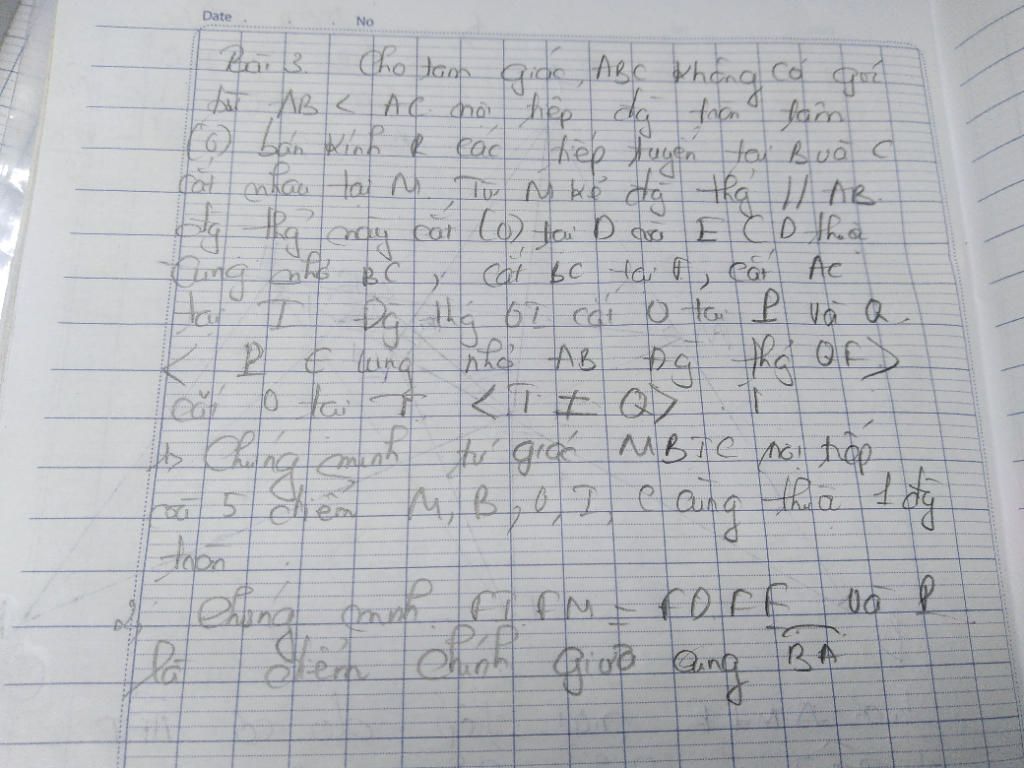 Date No
Bài 3. Cho tam giác ABC không có góc
tù AB < AC nội tiếp đg tròn tâm
(O) bán kính R các tiếp tuyến tại B và C
cắt nhau tại M. Từ M kẻ đg thg // AB
đg thg này cắt (O) tại D và E (D thuộc
cung nhỏ BC, cắt BC tại F, cắt AC
tại I Đg thg OI cắt O tại P và Q
< P ∈ cung nhỏ AB Đg thg QF >
cắt O tại T < T ≠ Q >. T
1> Chứng minh tứ giác MBIC nội tiếp
và 5 điểm M, B, O, I, C cùng thuộc 1 đg
tròn
2> Chứng minh FI.FM = FD.FE và P
là điểm chính giữa cung BA